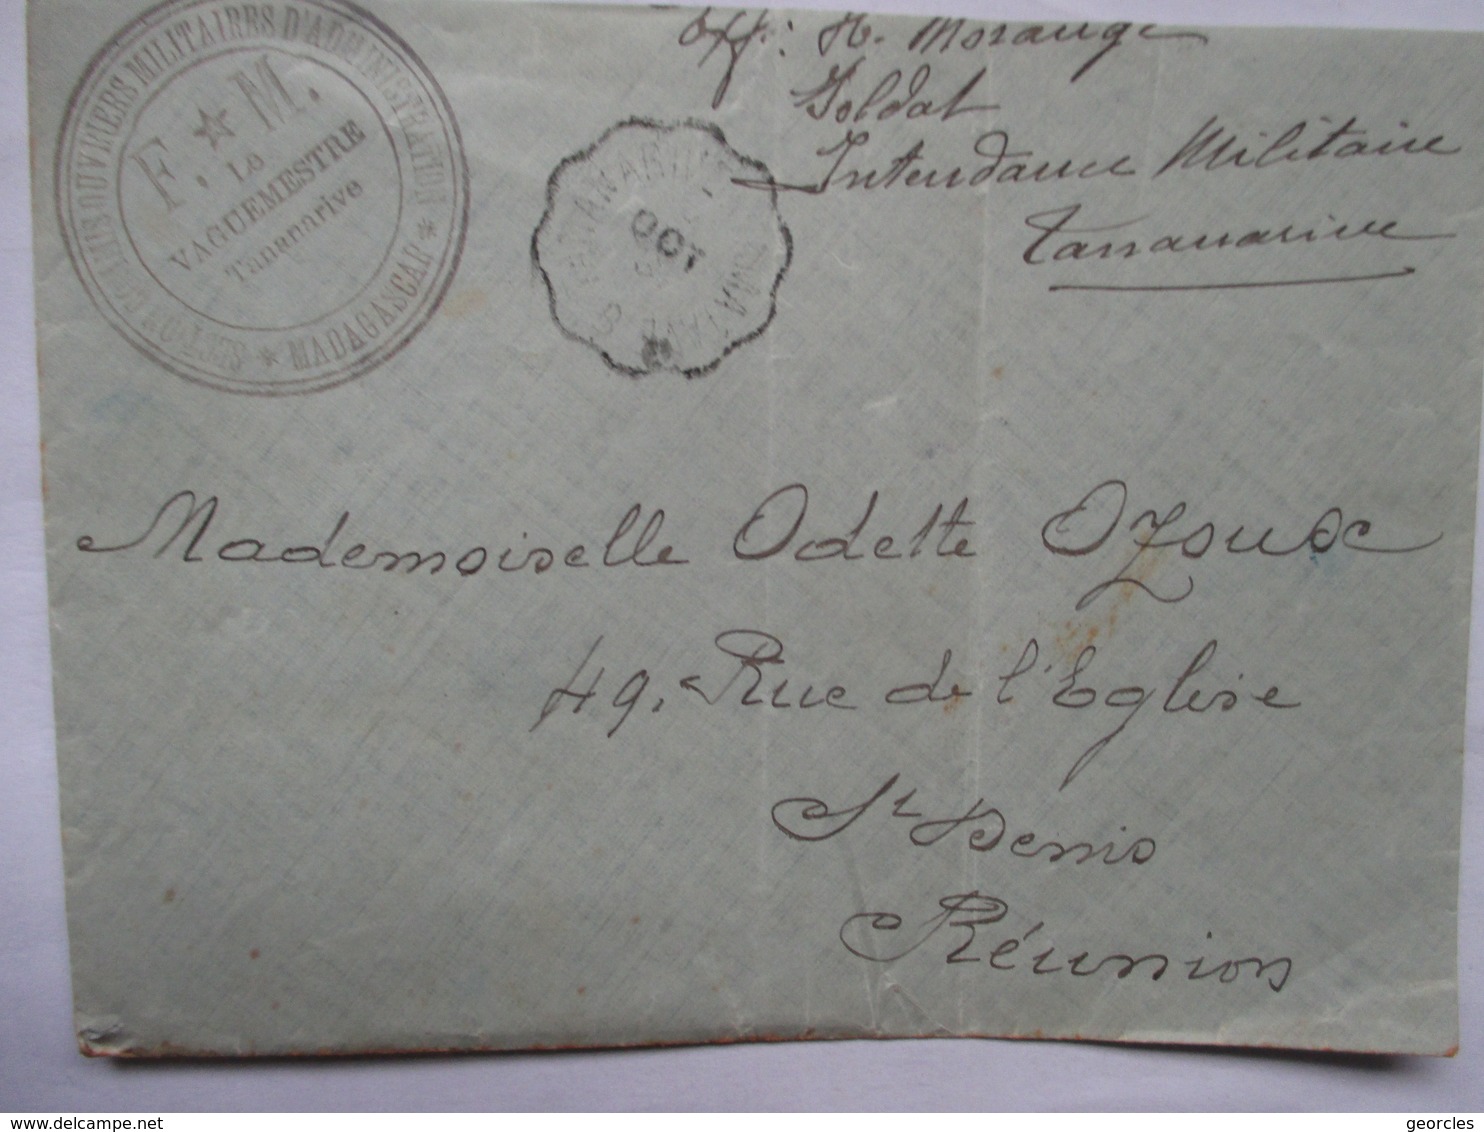 OUVRIERS MILITAIRES D'ADMINISTRATION
★ MADAGASCAR ★
F. ★ M.
Le
VAGUEMESTRE
Tananarive
OCT
H. Morange
Soldat
Intendance Militaire
Tananarive
Mademoiselle Odette Ozoux
49, Rue de l'Eglise
St Denis
Réunion
delcampe.net
georcles